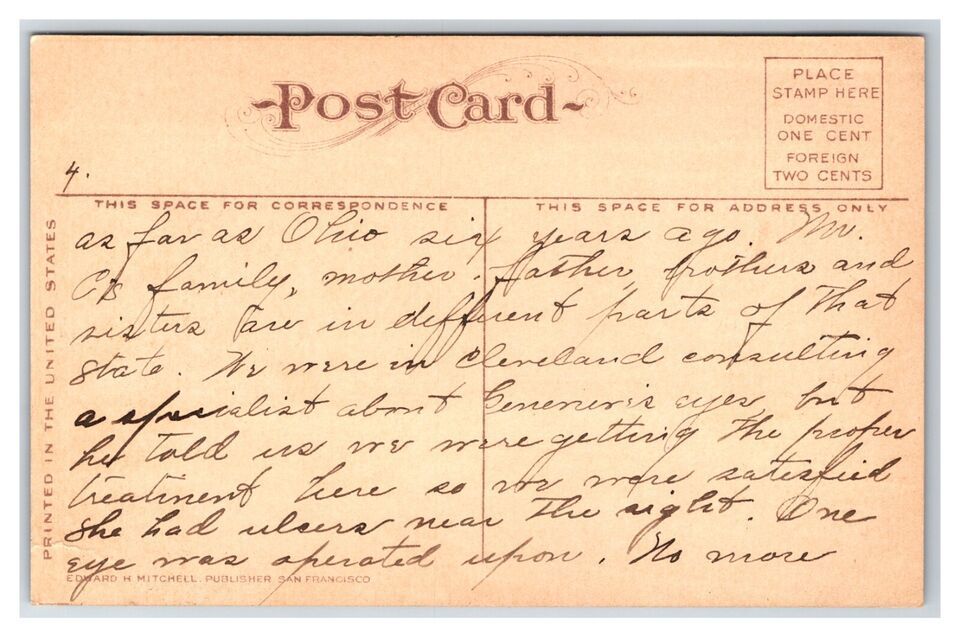 Post Card
PLACE
STAMP HERE
DOMESTIC
ONE CENT
FOREIGN
TWO CENTS
4.
THIS SPACE FOR CORRESPONDENCE
THIS SPACE FOR ADDRESS ONLY
as far as Ohio six years ago. Mr.
C's family, mother, father, brothers and
sisters are in different parts of that
state. We were in Cleveland consulting
a specialist about Genevieve's eyes, but
he told us we were getting the proper
treatment here so we were satesfied
She had ulcers near the sight. One
eye was operated upon. No more
PRINTED IN THE UNITED STATES
EDWARD H. MITCHELL, PUBLISHER SAN FRANCISCO